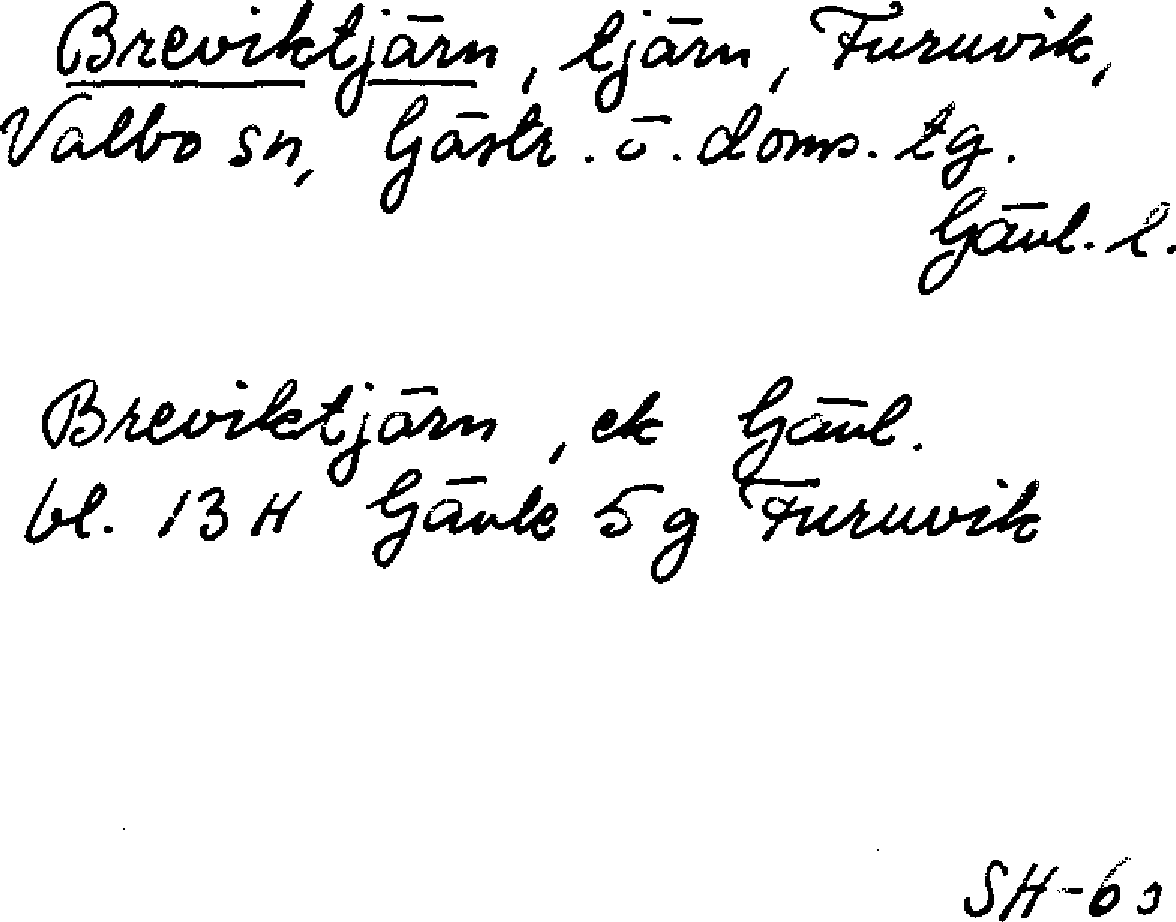 Breviktjärn, tjärn, Furuvik,
Valbo sn, Gästr. ö. doms. tg.
Gävl. l.
Breviktjärn, ek Gävl.
bl. 13 H Gävle 5 g Furuvik